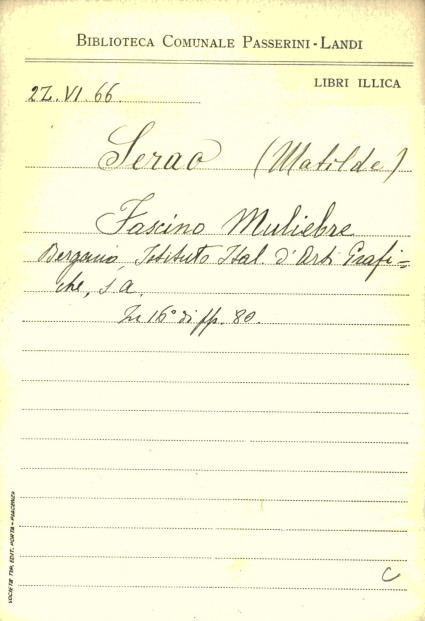 BIBLIOTECA COMUNALE PASSERINI-LANDI
LIBRI ILLICA
2Z.VI.66.
Serao (Matilde)
Fascino Muliebre
Bergamo, Istituto Ital. d'Arti Grafi=
che, s.a.
In 16° di pp. 80.
C
SOCIETÀ TIP. EDIT. PORTA - PIACENZA